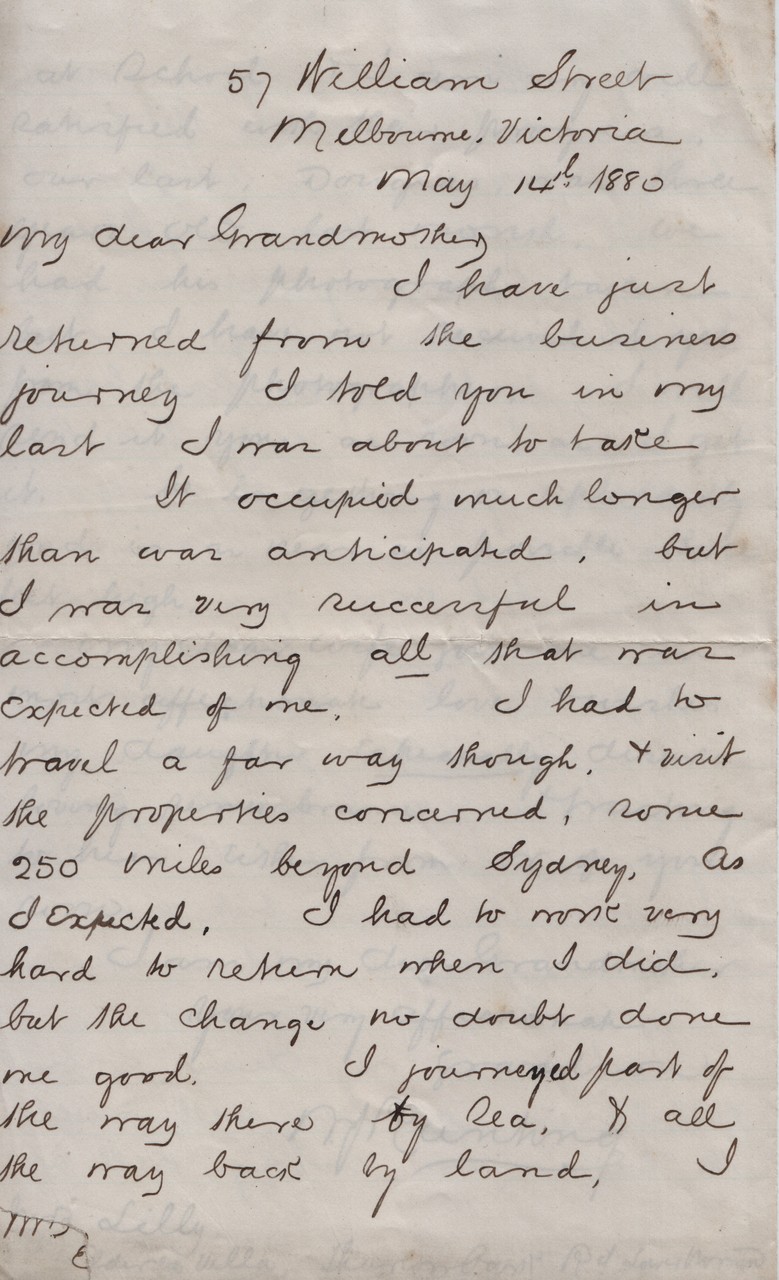 57 William Street
Melbourne. Victoria
May 14th. 1880
My dear Grandmother,
I have just
returned from the business
journey I told you in my
last I was about to take
It occupied much longer
than was anticipated, but
I was very successful in
accomplishing all that was
expected of me. I had to
travel a far way though, & visit
the properties concerned, some
250 miles beyond Sydney. As
I expected, I had to work very
hard to return when I did,
but the change no doubt done
me good. I journeyed part of
the way there by Sea, & all
the way back by land, I
Mrs
Lilly
Villa